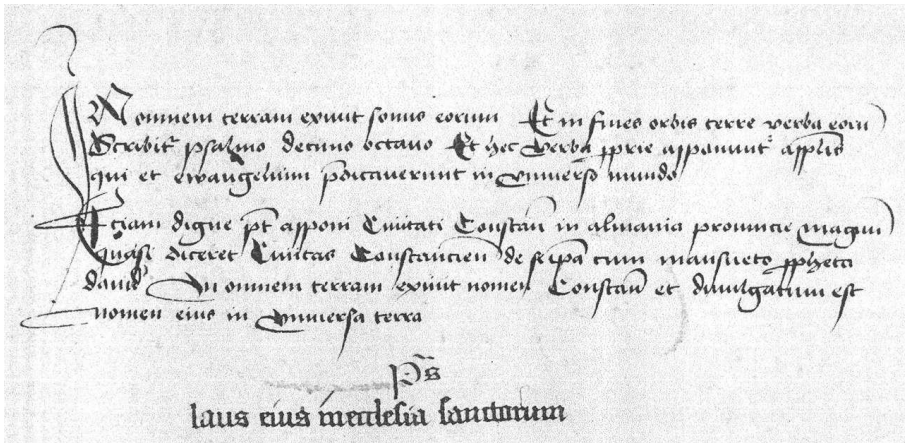 In omnem terram exivit sonus eorum Et in fines orbis terre verba eorū
Scribit᷑ psalmo decimo octavo Et hec verba ꝓprie apponunt᷑ applīs
qui et ewangelium p̄dicaverunt in vniverso mundo
Etiam digne pt̄ apponi Civitati Constan̄ in almania provincie magun̄
quasi diceret Civitas Constancien̄ de seip̄a cum mansueto ꝓpheta
david In omnem terram exivit nomen Constan̄ et divulgatum est
nomen eius in vniversa terra
Ps̄
laus eius in ecclesia sanctorum